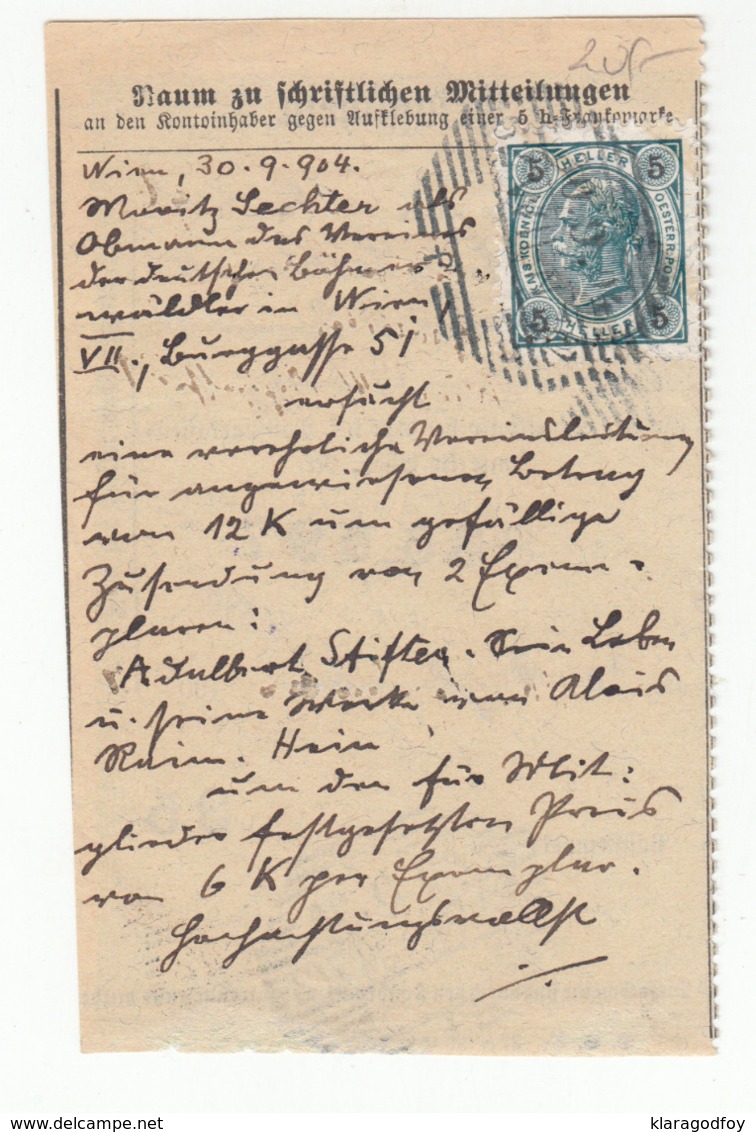 20/-
Raum zu schriftlichen Mitteilungen
an den Kontoinhaber gegen Aufklebung einer 5 h-Frankomarke
5 HELLER 5
KAIS. KOENIGL. OESTERR. POST
5 HELLER 5
Wien, 30.9.904.
Moritz Lechter als
Obmann des Vereines
der deutschen Böhmer
wäldler in Wien,
VII., Burggasse 51
ersucht
eine verehrliche Vereinsleitung
für angewiesenen Betrag
von 12 K um gefällige
Zusendung von 2 Exem-
plaren:
Adalbert Stifter. Sein Leben
u. seine Werke von Alois
Raim. Hein
um den für Mit:
glieder festgesetzten Preis
von 6 K per Exemplar.
Hochachtungsvollst
klaragodfoy